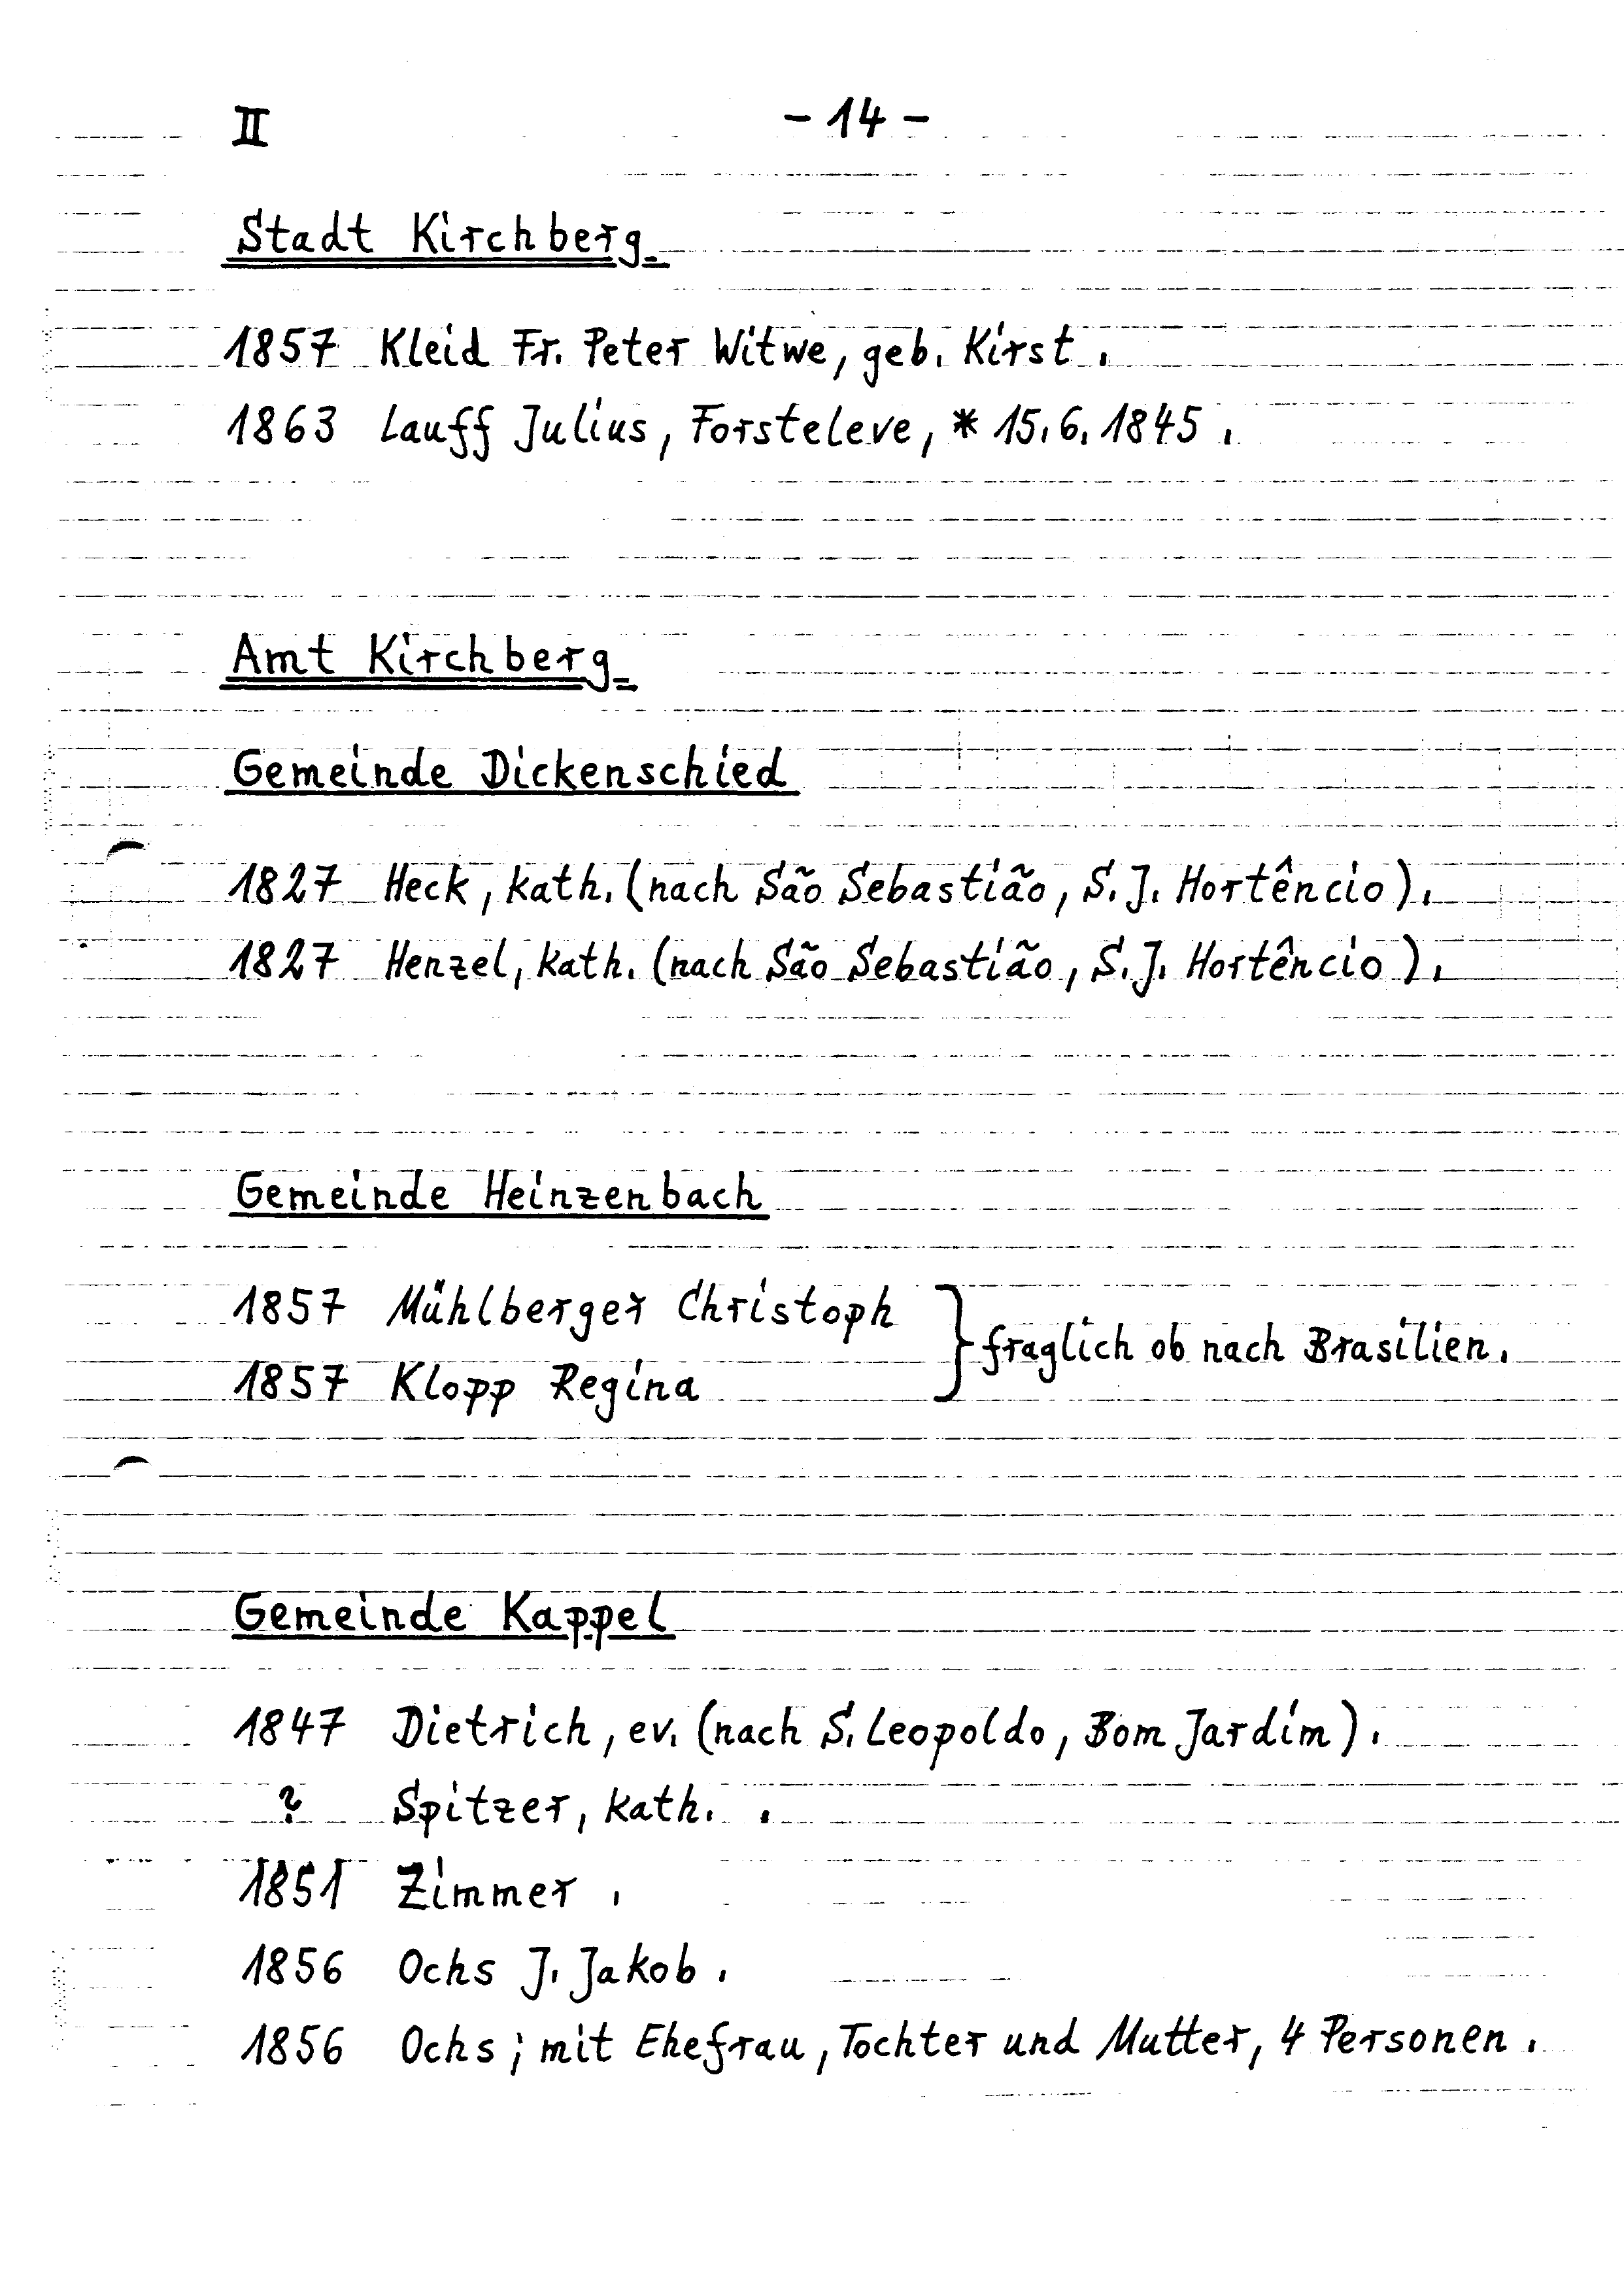 II - 14 -
Stadt Kirchberg
1857 Kleid Fr. Peter Witwe, geb. Kirst.
1863 Lauff Julius, Forsteleve, * 15.6.1845.
Amt Kirchberg
Gemeinde Dickenschied
1827 Heck, kath. (nach São Sebastião, S.J. Hortêncio).
1827 Henzel, kath. (nach São Sebastião, S.J. Hortêncio).
Gemeinde Heinzenbach
1857 Mühlberger Christoph
1857 Klopp Regina
} fraglich ob nach Brasilien.
Gemeinde Kappel
1847 Dietrich, ev. (nach S. Leopoldo, Bom Jardim).
? Spitzer, kath. .
1851 Zimmer .
1856 Ochs J. Jakob.
1856 Ochs; mit Ehefrau, Tochter und Mutter, 4 Personen.